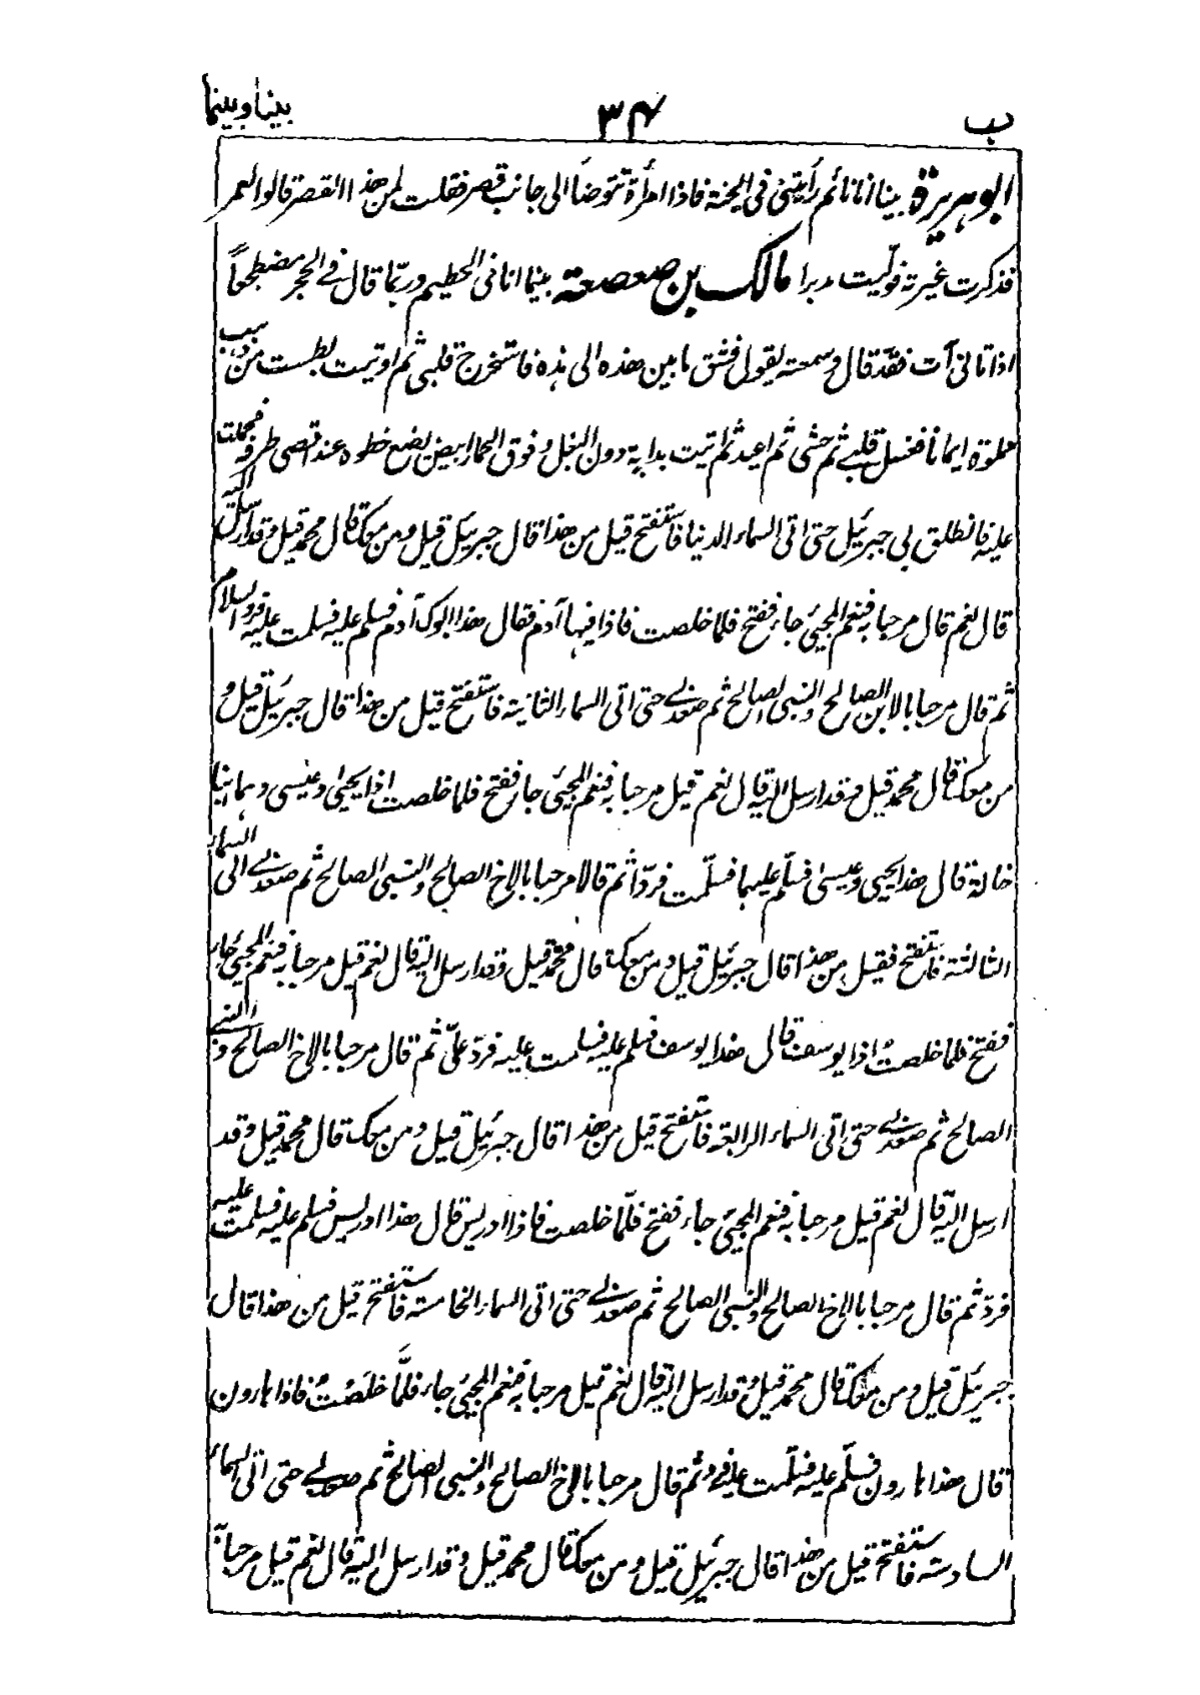 ب ۳۴ بينا وبينما
ابوهريرة بينا انا نائم رأيتني في الجنة فاذا امرأة تتوضأ الى جانب قصر فقلت لمن هذا القصر قالوا لعمر
فذكرت غيرته فولّيت مدبرا مالك بن صعصعة بينما انا فى الحطيم وربّما قال فے الحجر مضطجعاً
اذ اتانى آت فقدّ قال وسمعته يقول فشق ما بين هذه الى هذه فاستخرج قلبى ثم اوتيت بطست من ذهب
مملوة ايمانا فغسل قلبے ثم حشى ثم اعيد ثم اتيت بدابة دون البغل وفوق الحمار ابيض يضع خطوه عند اقصى طرفه فحملت
عليه فانطلق بى جبرئيل حتى اتى السماء الدنيا فاستفتح قيل من هذا قال جبرئيل قيل ومن معك قال محمد قيل وقد ارسل اليه
قال نعم قال مرحبا به فنعم المجئ جاء ففتح فلما خلصت فاذا فيها آدم فقال هذا ابوك آدم فسلم عليه فسلمت عليه فرد السلام
ثم قال مرحبا بالابن الصالح والنبى الصالح ثم صعد بے حتى اتى السماء الثانية فاستفتح قيل من هذا قال جبرئيل قيل و
من معك قال محمد قيل وقد ارسل اليه قال نعم قيل مرحبا به فنعم المجئ جاء ففتح فلما خلصت اذا يحيىٰ وعيسى وهما ابنا
خالة قال هذا يحيى وعيسىٰ فسلّم عليهما فسلّمت فردّا ثم قالا مرحبا بالاخ الصالح والنبى الصالح ثم صعد بے الى السماء
الثالثة فاستفتح فقيل من هذا قال جبرئيل قيل ومن معك قال محمّد قيل وقد ارسل اليه قال نعم قيل مرحبا به فنعم المجئ جاء
ففتح فلما خلصتُ اذا يوسف قال هذا يوسف فسلم عليه فسلمت عليه فردّ علىّ ثم قال مرحبا بالاخ الصالح والنبے
الصالح ثم صعد بے حتى اتى السماء الرابعة فاستفتح قيل من هذا قال جبرئيل قيل ومن معك قال محمد قيل وقد
ارسل اليه قال نعم قيل مرحبا به فنعم المجئ جاء ففتح فلمّا خلصت فاذا ادريس قال هذا ادريس فسلم عليه فسلمت عليه
فردّ ثم قال مرحبا بالاخ الصالح والنبى الصالح ثم صعد بے حتى اتى السماء الخامسة فاستفتح قيل من هذا قال
جبرئيل قيل ومن معك قال محمد قيل وقد ارسل اليه قال نعم قيل مرحبا به فنعم المجئ جاء فلمّا خلصتُ فاذا هارون
قال هذا هارون فسلّم عليه فسلّمت عليه فرد ثم قال مرحبا بالاخ الصالح والنبى الصالح ثم صعد بے حتى اتى السماء
السادسة فاستفتح قيل من هذا قال جبرئيل قيل ومن معك قال محمد قيل وقد ارسل اليه قال نعم قيل مرحبا به